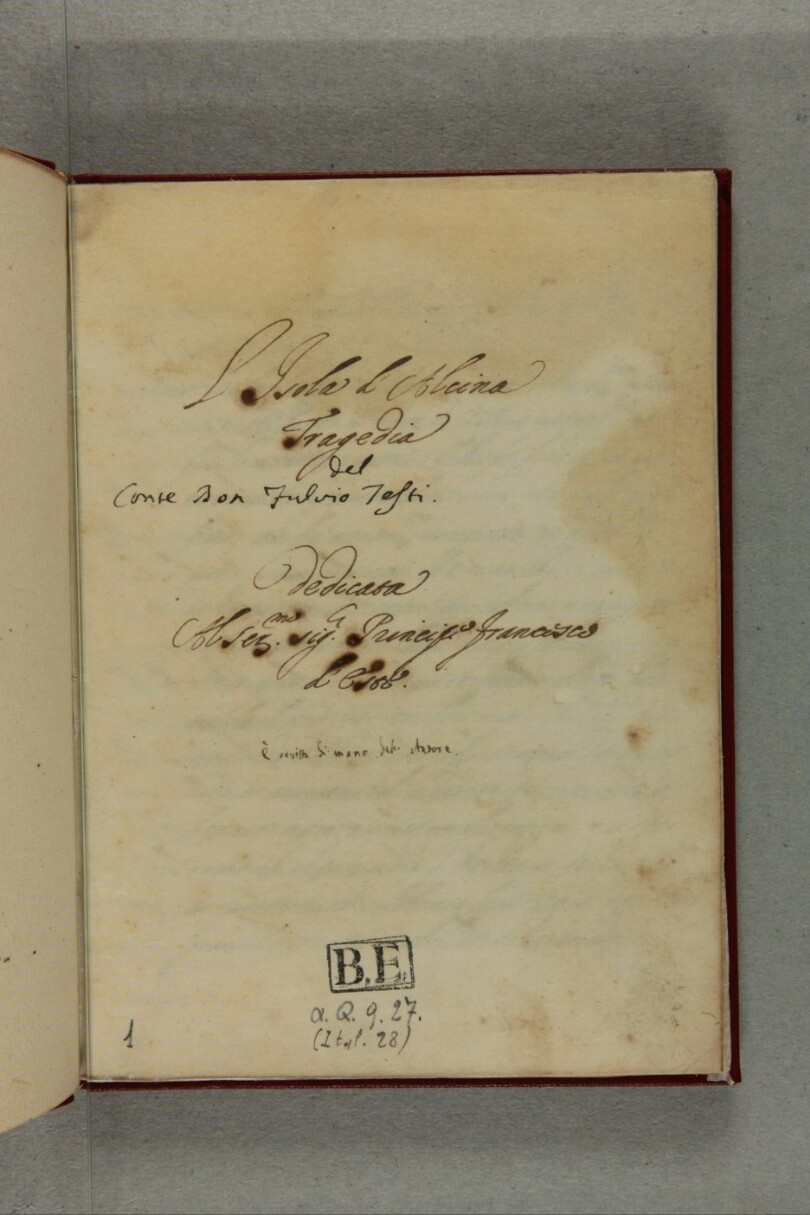 L'Isola d'Alcina
Tragedia
del
Conte Don Fulvio Testi.
Dedicata
Al Ser.mo sig.r Principe Francesco
d'Este.
è scritta di mano dell' Autore.
B.E.
α. Q. 9. 27.
(Ital. 28)
1